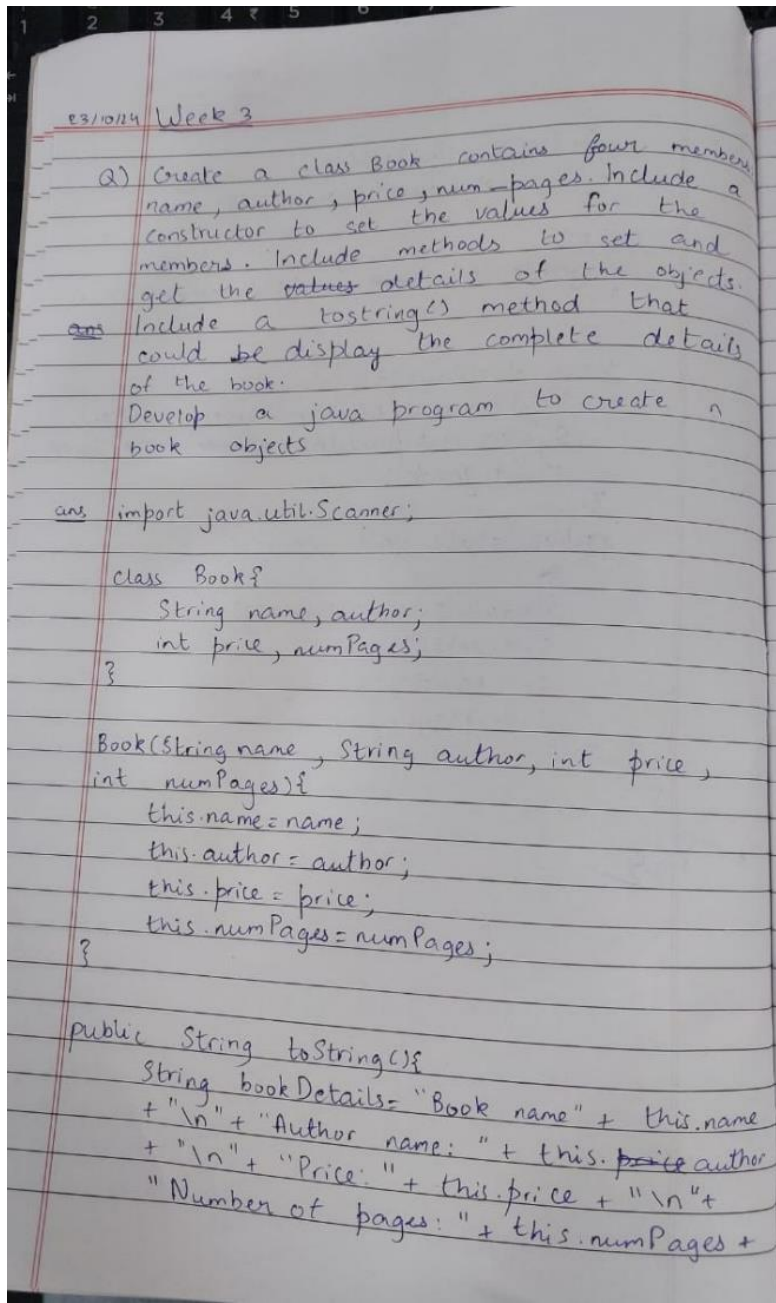 1 2 3 4 ₹ 5 6
23/10/24 Week 3
Q) Create a class Book contains four members
name, author, price, num-pages. Include a
constructor to set the values for the
members. Include methods to set and
get the values details of the objects.
ans Include a tostring() method that
could be display the complete details
of the book.
Develop a java program to create n
book objects
ans import java.util.Scanner;
class Book{
String name, author;
int price, numPages;
}
Book(String name, String author, int price,
int numPages){
this.name=name;
this.author=author;
this.price=price;
this.numPages=numPages;
}
public String toString(){
String bookDetails= "Book name" + this.name
+ "\n" + "Author name: " + this. price author
+ "\n" + "Price: " + this.price + "\n"+
"Number of pages: " + this.numPages +